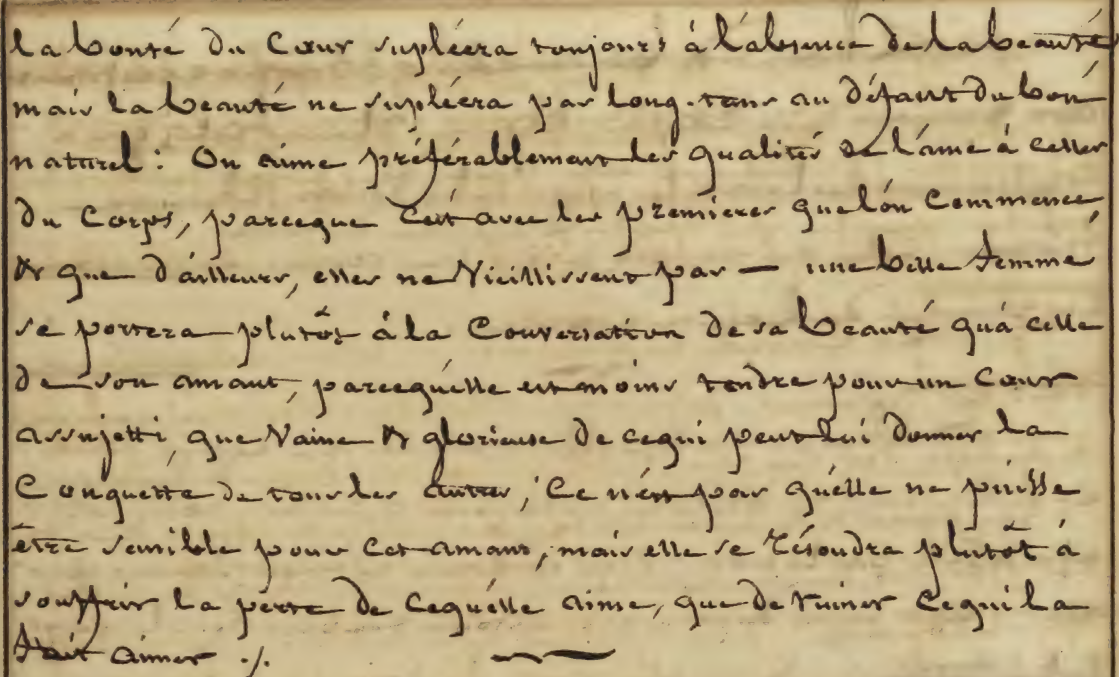 la bonté du Cœur supléera toujours à l'absence de la beauté
mais la beauté ne supléera pas long-tans au défaut du bon
naturel : On aime préférablement les qualités de l'âme à celles
du Corps, parceque C'est avec les premieres que l'on Commence,
& que d'ailleurs, elles ne Vieillissent pas — une belle femme
se portera plutôt à la Conversation de sa beauté qu'à celle
de son amant, parcequ'elle est moins tendre pour un Cœur
assujetti, que Vaine & glorieuse de cequi peut lui donner la
Conquette de tous les autres ; Ce n'est pas qu'elle ne puisse
être sensible pour Cet amant, mais elle se résoudra plutôt à
souffrir la perte de Cequ'elle aime, que de ruiner Cequi la
fait aimer ./.